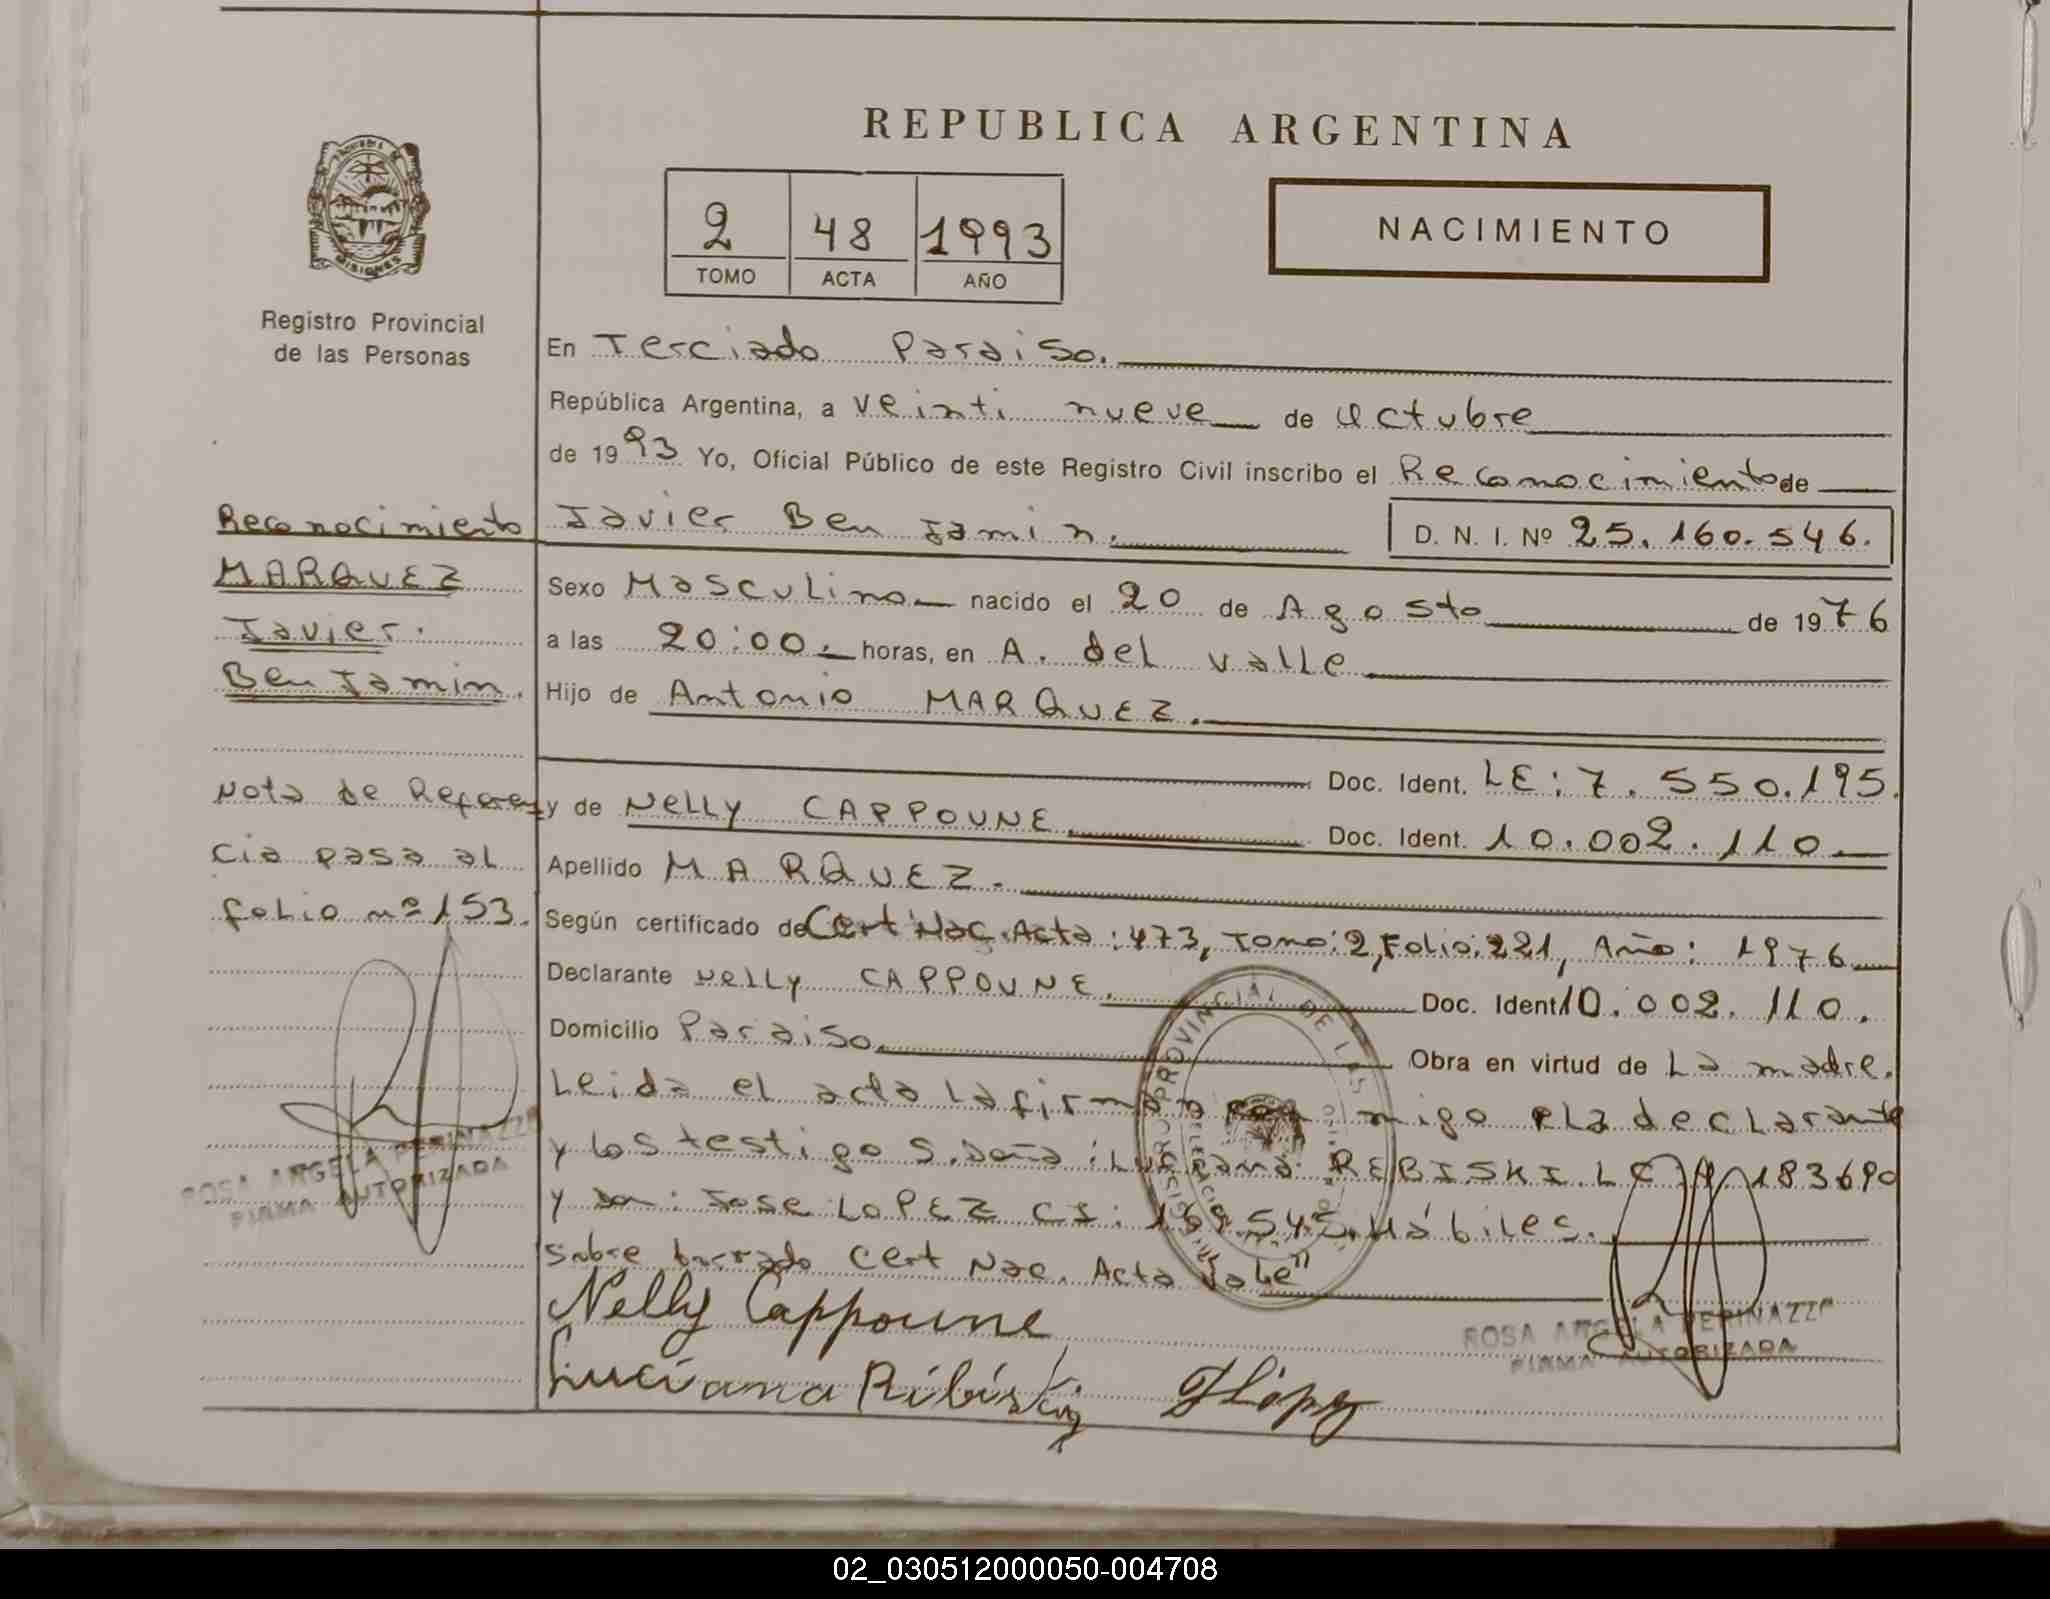 REPUBLICA ARGENTINA
2 48 1993
TOMO ACTA AÑO
NACIMIENTO
MISIONES
Registro Provincial
de las Personas
En Terciado Paraiso.
República Argentina, a veinti nueve de Octubre
de 1993 Yo, Oficial Público de este Registro Civil inscribo el Reconocimiento de
Javier Benjamin.
D. N. I. Nº 25.160.546.
Reconocimiento
MARQUEZ
Javier.
Benjamin.
Sexo Masculino nacido el 20 de Agosto de 1976
a las 20:00. horas, en A. del valle
Hijo de Antonio MARQUEZ.
Doc. Ident. LE: 7.550.195.
y de Nelly CAPPOUNE Doc. Ident. 10.002.110.
Apellido MARQUEZ.
Según certificado de Cert Nac. Acta: 473, Tomo: 2, Folio: 221, Año: 1976
Declarante Nelly CAPPOUNE. Doc. Ident 10.002.110.
Domicilio Paraiso. Obra en virtud de La madre.
Nota de Referen
cia pasa al
folio nº 153.
Leida el acta la firman con migo la declarante
y los testigo S. doña: Luciana REBISKI LC 183690
y don: Jose LOPEZ CI: 169.545. Hábiles.
Sobre borrado Cert Nac. Acta Vale"
Nelly Cappoune
Luciana Ribiski JLópez
ROSA ANGELA PERINAZZO
FIRMA AUTORIZADA
ROSA ANGELA PERINAZZO
FIRMA AUTORIZADA
PROVINCIAL DE LAS
02_030512000050-004708